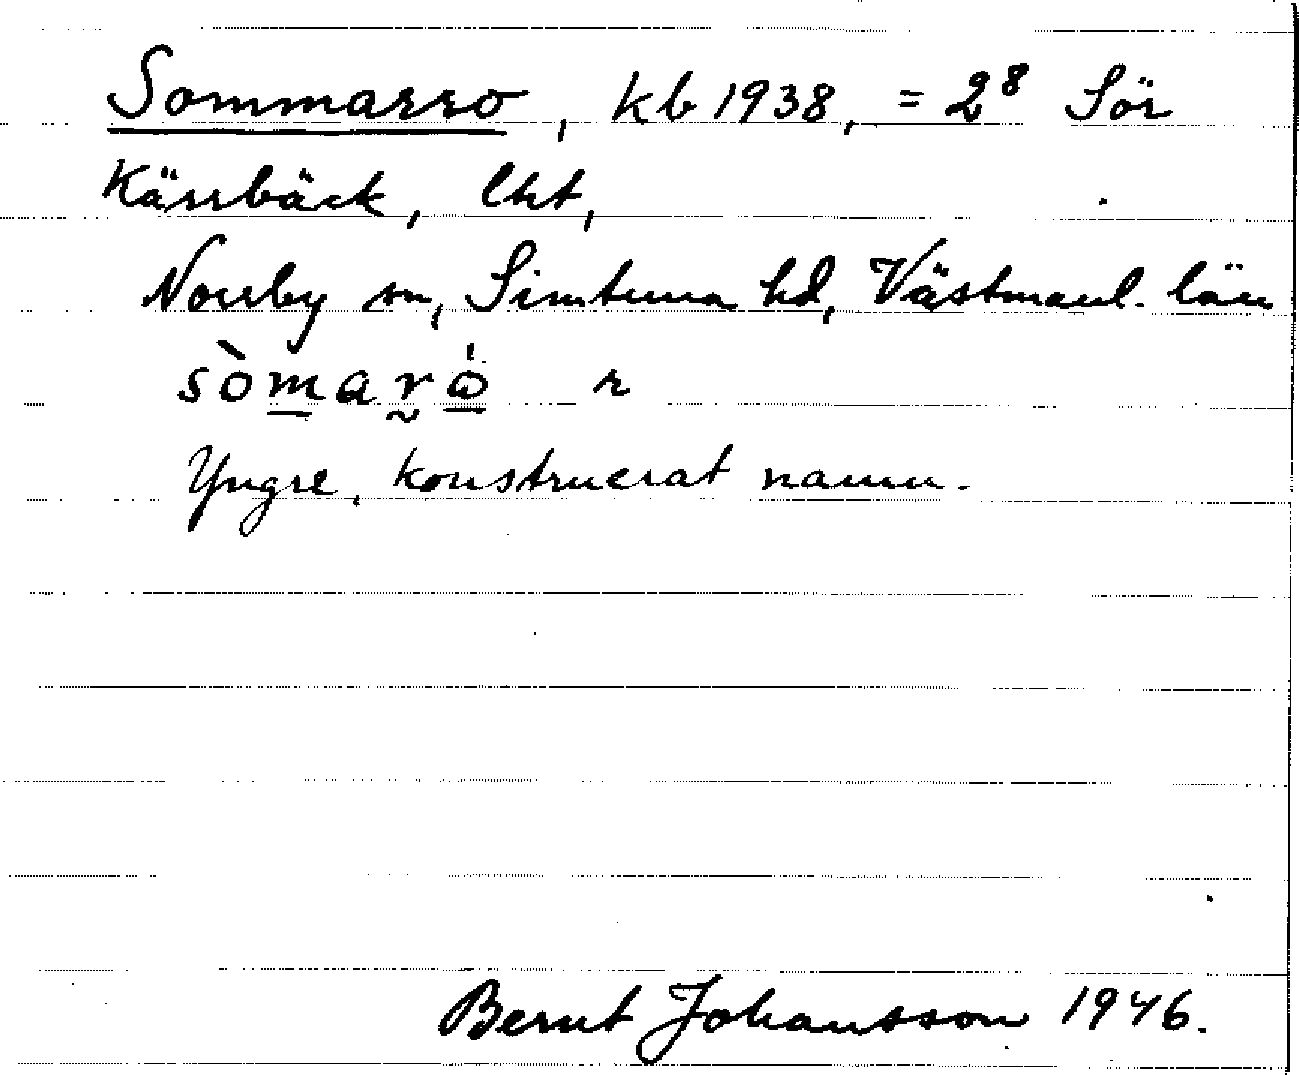 Sommarro, kb 1938, = 2⁸ Sör
Kärrbäck, lht,
Norrby sn, Simtuna hd, Västmanl. län
sòmaró r
Yngre, konstruerat namn.
Bernt Johansson 1946.